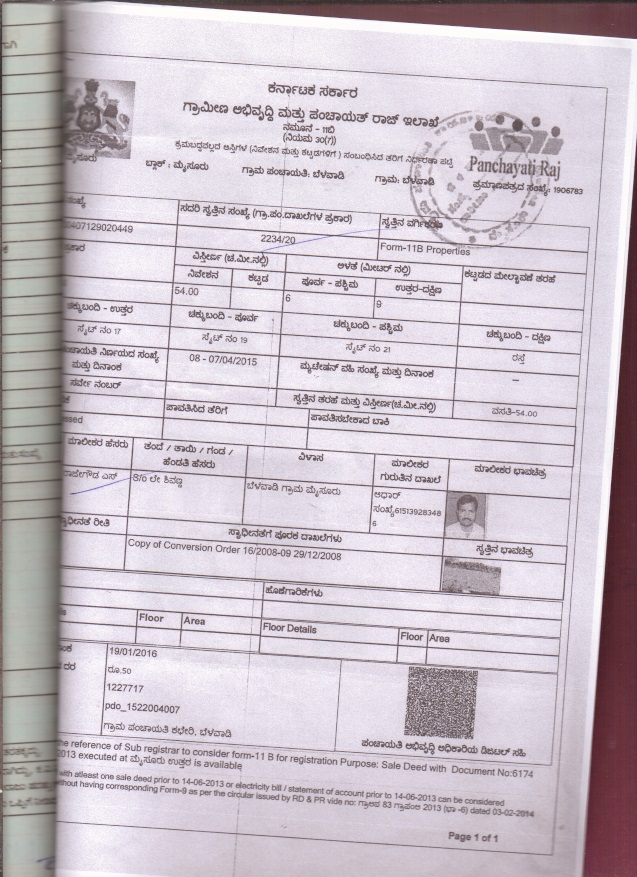 ಕರ್ನಾಟಕ ಸರ್ಕಾರ
ಗ್ರಾಮೀಣ ಅಭಿವೃದ್ಧಿ ಮತ್ತು ಪಂಚಾಯತ್ ರಾಜ್ ಇಲಾಖೆ
ನಮೂನೆ - 11ಬಿ
(ನಿಯಮ 30(ಗ))
ಕ್ರಮಬದ್ಧವಲ್ಲದ ಆಸ್ತಿಗಳ (ನಿವೇಶನ ಮತ್ತು ಕಟ್ಟಡಗಳಿಗೆ) ಸಂಬಂಧಿಸಿದ ತೆರಿಗೆ ನಿರ್ಧಾರಣಾ ಪಟ್ಟಿ
Panchayati Raj
ಮೈಸೂರು ಬ್ಲಾಕ್ : ಮೈಸೂರು ಗ್ರಾಮ ಪಂಚಾಯತಿ: ಬೆಳವಾಡಿ ಗ್ರಾಮ: ಬೆಳವಾಡಿ ಪ್ರಮಾಣಪತ್ರದ ಸಂಖ್ಯೆ: 1906783
ಸಂಖ್ಯೆ ಸದರಿ ಸ್ವತ್ತಿನ ಸಂಖ್ಯೆ (ಗ್ರಾ.ಪಂ.ದಾಖಲೆಗಳ ಪ್ರಕಾರ) ಸ್ವತ್ತಿನ ವರ್ಗೀಕರಣ
0407129020449 2234/20 Form-11B Properties
ವಿಸ್ತೀರ್ಣ (ಚ.ಮೀ.ನಲ್ಲಿ) ಅಳತೆ (ಮೀಟರ್ ನಲ್ಲಿ) ಕಟ್ಟಡದ ಮೇಲ್ಛಾವಣಿ ತರಹೆ
ನಿವೇಶನ ಕಟ್ಟಡ ಪೂರ್ವ - ಪಶ್ಚಿಮ ಉತ್ತರ-ದಕ್ಷಿಣ
54.00 6 9
ಚಕ್ಕುಬಂದಿ - ಉತ್ತರ ಚಕ್ಕುಬಂದಿ - ಪೂರ್ವ ಚಕ್ಕುಬಂದಿ - ಪಶ್ಚಿಮ ಚಕ್ಕುಬಂದಿ - ದಕ್ಷಿಣ
ಸೈಟ್ ನಂ 17 ಸೈಟ್ ನಂ 19 ಸೈಟ್ ನಂ 21 ರಸ್ತೆ
ಪಂಚಾಯತಿ ನಿರ್ಣಯದ ಸಂಖ್ಯೆ 08 - 07/04/2015 ಮ್ಯುಟೇಷನ್ ವಹಿ ಸಂಖ್ಯೆ ಮತ್ತು ದಿನಾಂಕ –
ಮತ್ತು ದಿನಾಂಕ
ಸರ್ವೇ ನಂಬರ್ ಸ್ವತ್ತಿನ ತರಹೆ ಮತ್ತು ವಿಸ್ತೀರ್ಣ(ಚ.ಮೀ.ನಲ್ಲಿ) ವಸತಿ-54.00
ಪಾವತಿಸಿದ ತೆರಿಗೆ ಪಾವತಿಸಬೇಕಾದ ಬಾಕಿ
ಮಾಲೀಕರ ಹೆಸರು ತಂದೆ / ತಾಯಿ / ಗಂಡ / ವಿಳಾಸ ಮಾಲೀಕರ ಮಾಲೀಕರ ಭಾವಚಿತ್ರ
ಹೆಂಡತಿ ಹೆಸರು ಗುರುತಿನ ದಾಖಲೆ
ರಾಜೇಗೌಡ ಎಸ್ S/o ಲೇ ಶಿವಣ್ಣ ಬೆಳವಾಡಿ ಗ್ರಾಮ ಮೈಸೂರು ಆಧಾರ್
ಸಂಖ್ಯೆ61513928348
6
ಸ್ವಾಧೀನತೆ ರೀತಿ ಸ್ವಾಧೀನತೆಗೆ ಪೂರಕ ದಾಖಲೆಗಳು ಸ್ವತ್ತಿನ ಭಾವಚಿತ್ರ
Copy of Conversion Order 16/2008-09 29/12/2008
ಹೊಣೆಗಾರಿಕೆಗಳು
Floor Area Floor Details Floor Area
19/01/2016
ದರ ರೂ.50
1227717
pdo_1522004007
ಗ್ರಾಮ ಪಂಚಾಯತಿ ಕಛೇರಿ, ಬೆಳವಾಡಿ
ಪಂಚಾಯತಿ ಅಭಿವೃದ್ಧಿ ಅಧಿಕಾರಿಯ ಡಿಜಿಟಲ್ ಸಹಿ
the reference of Sub registrar to consider form-11 B for registration Purpose: Sale Deed with Document No:6174
2013 executed at ಮೈಸೂರು ಉತ್ತರ is available
with atleast one sale deed prior to 14-06-2013 or electricity bill / statement of account prior to 14-06-2013 can be considered
without having corresponding Form-9 as per the circular issued by RD & PR vide no: ಗ್ರಾಅಪ 83 ಗ್ರಾಪಂಅ 2013 (ಭಾ -6) dated 03-02-2014
Page 1 of 1